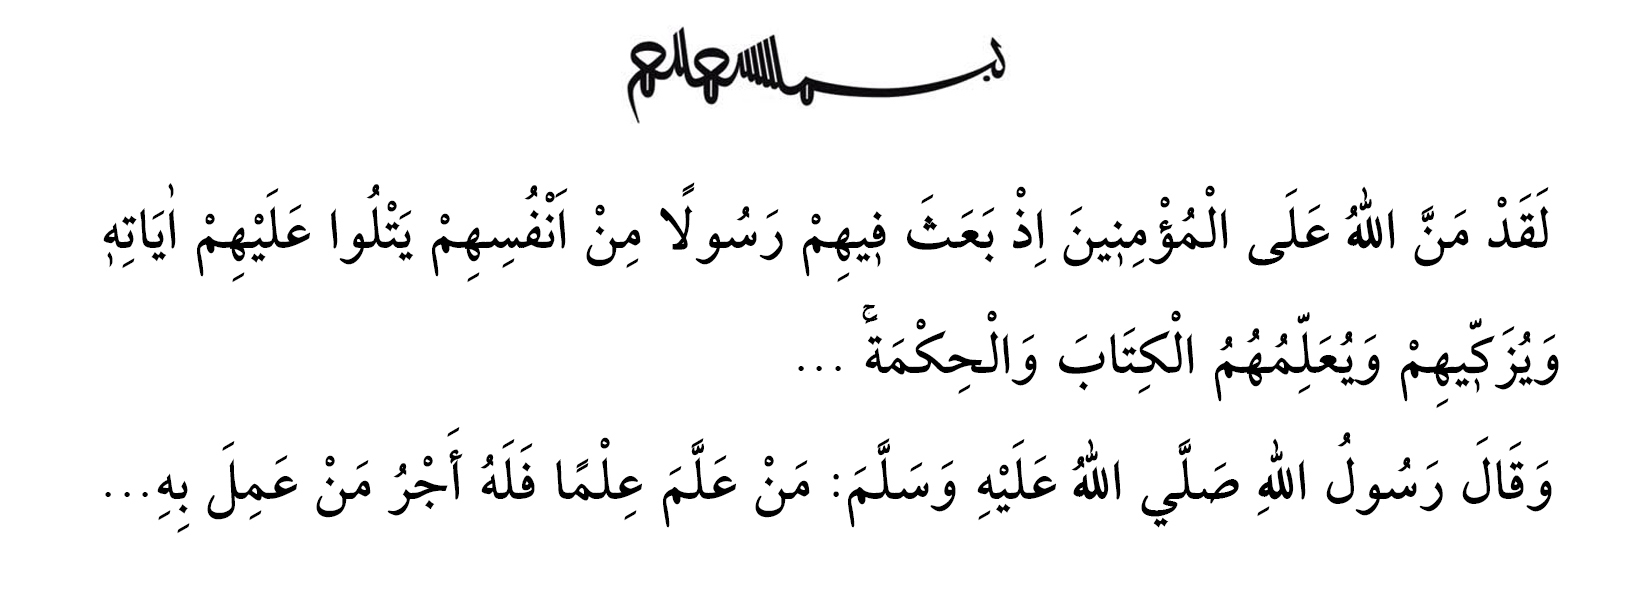 لَقَدْ مَنَّ اللّٰهُ عَلَى الْمُؤْمِن۪ينَ اِذْ بَعَثَ ف۪يهِمْ رَسُولًا مِنْ اَنْفُسِهِمْ يَتْلُوا عَلَيْهِمْ اٰيَاتِه۪
وَيُزَكّ۪يهِمْ وَيُعَلِّمُهُمُ الْكِتَابَ وَالْحِكْمَةَۚ ...
وَقَالَ رَسُولُ اللّٰهِ صَلَّي اللّٰهُ عَلَيْهِ وَسَلَّمَ: مَنْ عَلَّمَ عِلْمًا فَلَهُ أَجْرُ مَنْ عَمِلَ بِهِ...